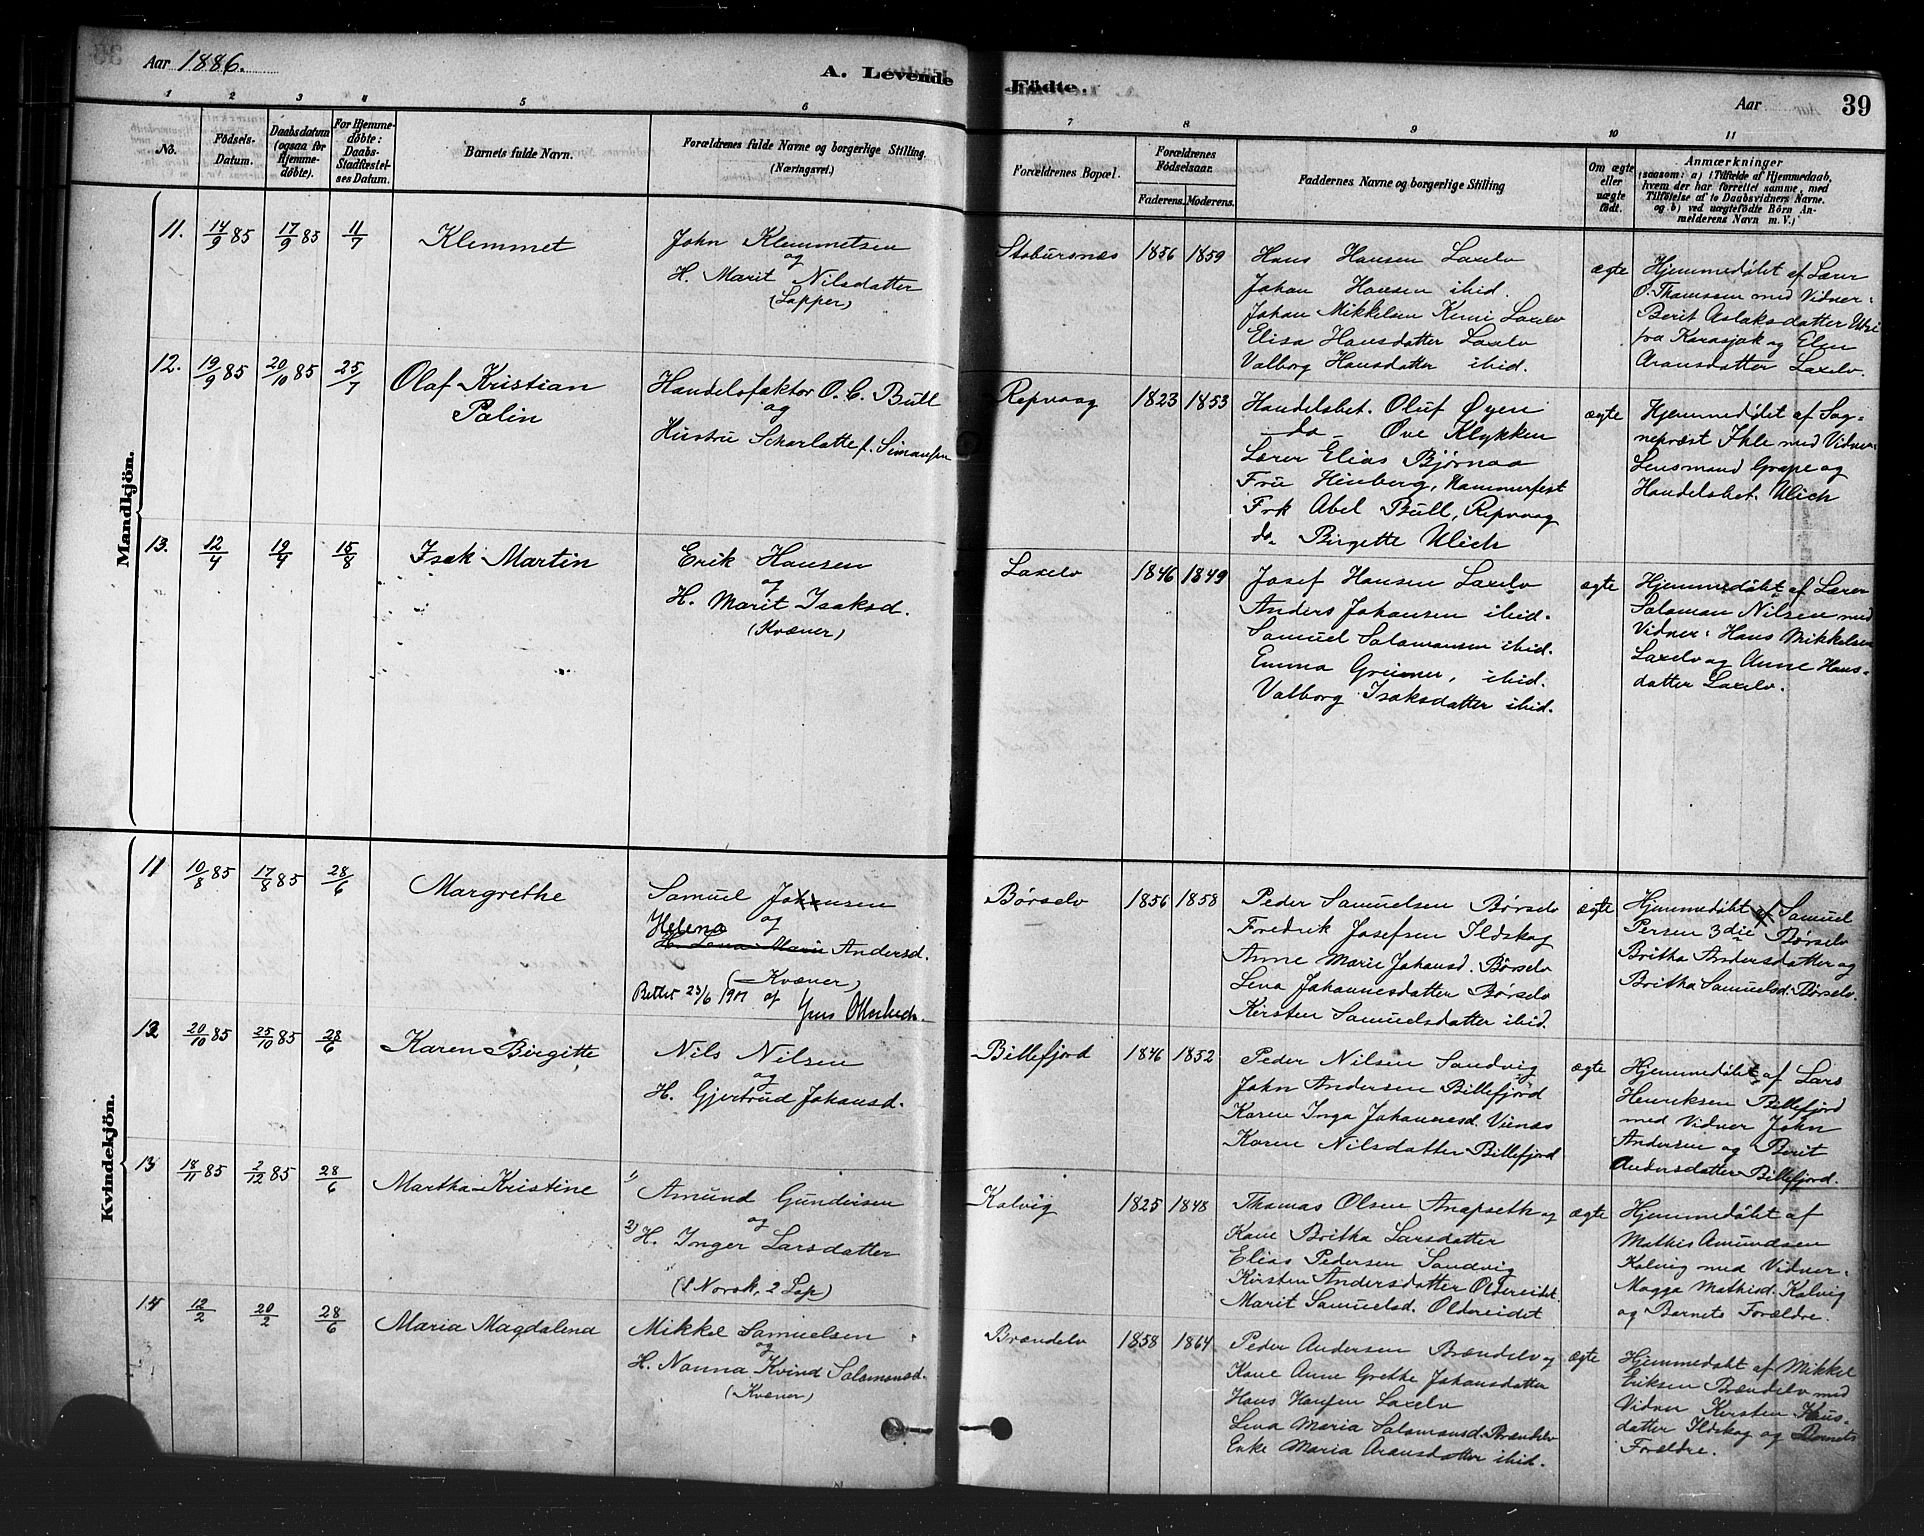 Aar 1886. A. Levende Födte. Aar 39
1 2 3 4 5 6 7 8 9 10 11
No.
Födsels-Datum.
Daabsdatum (ogsaa for Hjemmedöbte).
For Hjemmedöbte: Daabs-Stadfæstelses Datum.
Barnets fulde Navn.
Forældrenes fulde Navne og borgerlige Stilling. (Næringsvei.)
Forældrenes Bopæl.
Forældrenes Födselsaar.
Faderens. Moderens.
Faddernes Navne og borgerlige Stilling
Om ægte eller uægte födt.
Anmærkninger
(saasom: a) i Tilfælde af Hjemmedaab, hvem der har forrettet samme, med Tilföielse af to Daabsvidners Navne, og b) ved uægtefödte Börn Anmelderens Navn m. V.)
Mandkjön.
11. 14/9 85 17/9 85 11/7 Klemmet
John Klemmetsen
og
H. Marit Nilsdatter
(Lapper)
Stabursnæs 1856 1859
Hans Hansen Laxelv
Johan Hansen ibid.
Johan Mikkelsen Kemi Laxelv
Elisa Hansdatter Laxelv
Valborg Hansdatter ibid.
ægte
Hjemmedøbt af Lærer
O. Thomsen med Vidner:
Berit Aslaksdatter Utsi
fra Karasjok og Elen
Aronsdatter Laxelv.
12. 19/9 85 20/10 85 25/7 Olaf Kristian
Palin
Handelsfaktor O. C. Bull
og
Hustru Scharlotte f. Simonsen
Repvaag 1823 1853
Handelsbet. Oluf Øyen
do Ove Klykken
Lærer Elias Bjørnaa
Fru Hinberg, Hammerfest
Frk Abel Bull, Repvaag
do. Birgette Ulich
ægte
Hjemmedøbt af Sog-
nepræst Ihle med Vidner:
Lensmand Grape og
Handelsbet. Ulich
13. 12/4 19/4 15/8 Isak Martin
Erik Hansen
og
H. Marit Isaksd.
(Kvæner)
Laxelv 1846 1849
Josef Hansen Laxelv
Anders Johansen ibid.
Samuel Salamonsen ibid.
Emma Greiner, ibid.
Valborg Isaksdatter ibid.
ægte
Hjemmedøbt af Lærer
Salamon Nilsen med
Vidner: Hans Mikkelsen
Laxelv og Anne Hans-
datter Laxelv.
Kvindekjön.
11 10/8 85 17/8 85 28/6 Margrethe
Samuel Johansen
og
Helena
H. Lena Marie Andersd.
(Kvæner)
Rettet 23/6 1901 af
Børselv 1856 1858
Peder Samuelsen Børselv
Fredrik Josefsen Ildskog
Anne Marie Johansd. Børselv
Lena Johannesdatter Børselv
Kirsten Samuelsdatter ibid.
ægte
Hjemmedøbt af Samuel
Persen 3die Børselv
Britha Andersdatter og
Britha Samuelsd. Børselv.
12 20/10 85 25/10 85 28/6 Karen Birgitte
Nils Nilsen
og
H. Gjertrud Johansd.
Billefjord 1846 1852
Peder Nilsen Sandvig
John Andersen Billefjord
Karen Inga Johannesd. Vienæs
Karen Nilsdatter Billefjord
ægte
Hjemmedøbt af Lars
Henriksen Billefjord
med Vidner John
Andersen og Berit
Andersdatter Billefjord.
13 18/11 85 2/12 85 28/6 Martha Kristine
1) Amund Gundersen
og
2) H. Inger Larsdatter
(1 Norsk, 2 Lap)
Kolvig 1825 1848
Thomas Olsen Anopseth og
Kone Britha Larsdatter
Elias Pedersen Sandvig
Kirsten Andersdatter Oldereidet.
Marit Samuelsd. Oldereidet
ægte
Hjemmedøbt af
Mathis Amundsen
Kolvig med Vidner:
Magga Mathisd. Kolvig
og Barnets Forældre.
14 12/2 20/2 28/6 Maria Magdalena
Mikkel Samuelsen
og
H. Nanna Kvind Salamonsd.
(Kvæner)
Brændelv 1858 1864
Peder Andersen Brændelv og
Kone Anne Grethe Johansdatter
Hans Hansen Laxelv
Lena Maria Salamonsd. Brændelv
Enke Maria Aronsdatter ibid.
ægte
Hjemmedøbt af Mikkel
Eriksen Brændelv med
Vidner Kirsten Hans-
datter Ildskog og Barnets
Forældre.